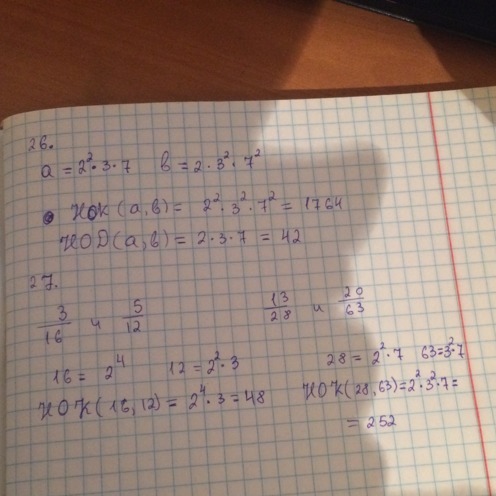 26.
a = 2²·3·7 b = 2·3²·7²
НОК (a, b) = 2²·3²·7² = 1764
НОД (a, b) = 2·3·7 = 42
27.
3/16 и 5/12 13/28 и 20/63
16 = 2⁴ 12 = 2²·3 28 = 2²·7 63 = 3²·7
НОК (16, 12) = 2⁴·3 = 48 НОК (28, 63) = 2²·3²·7 =
= 252